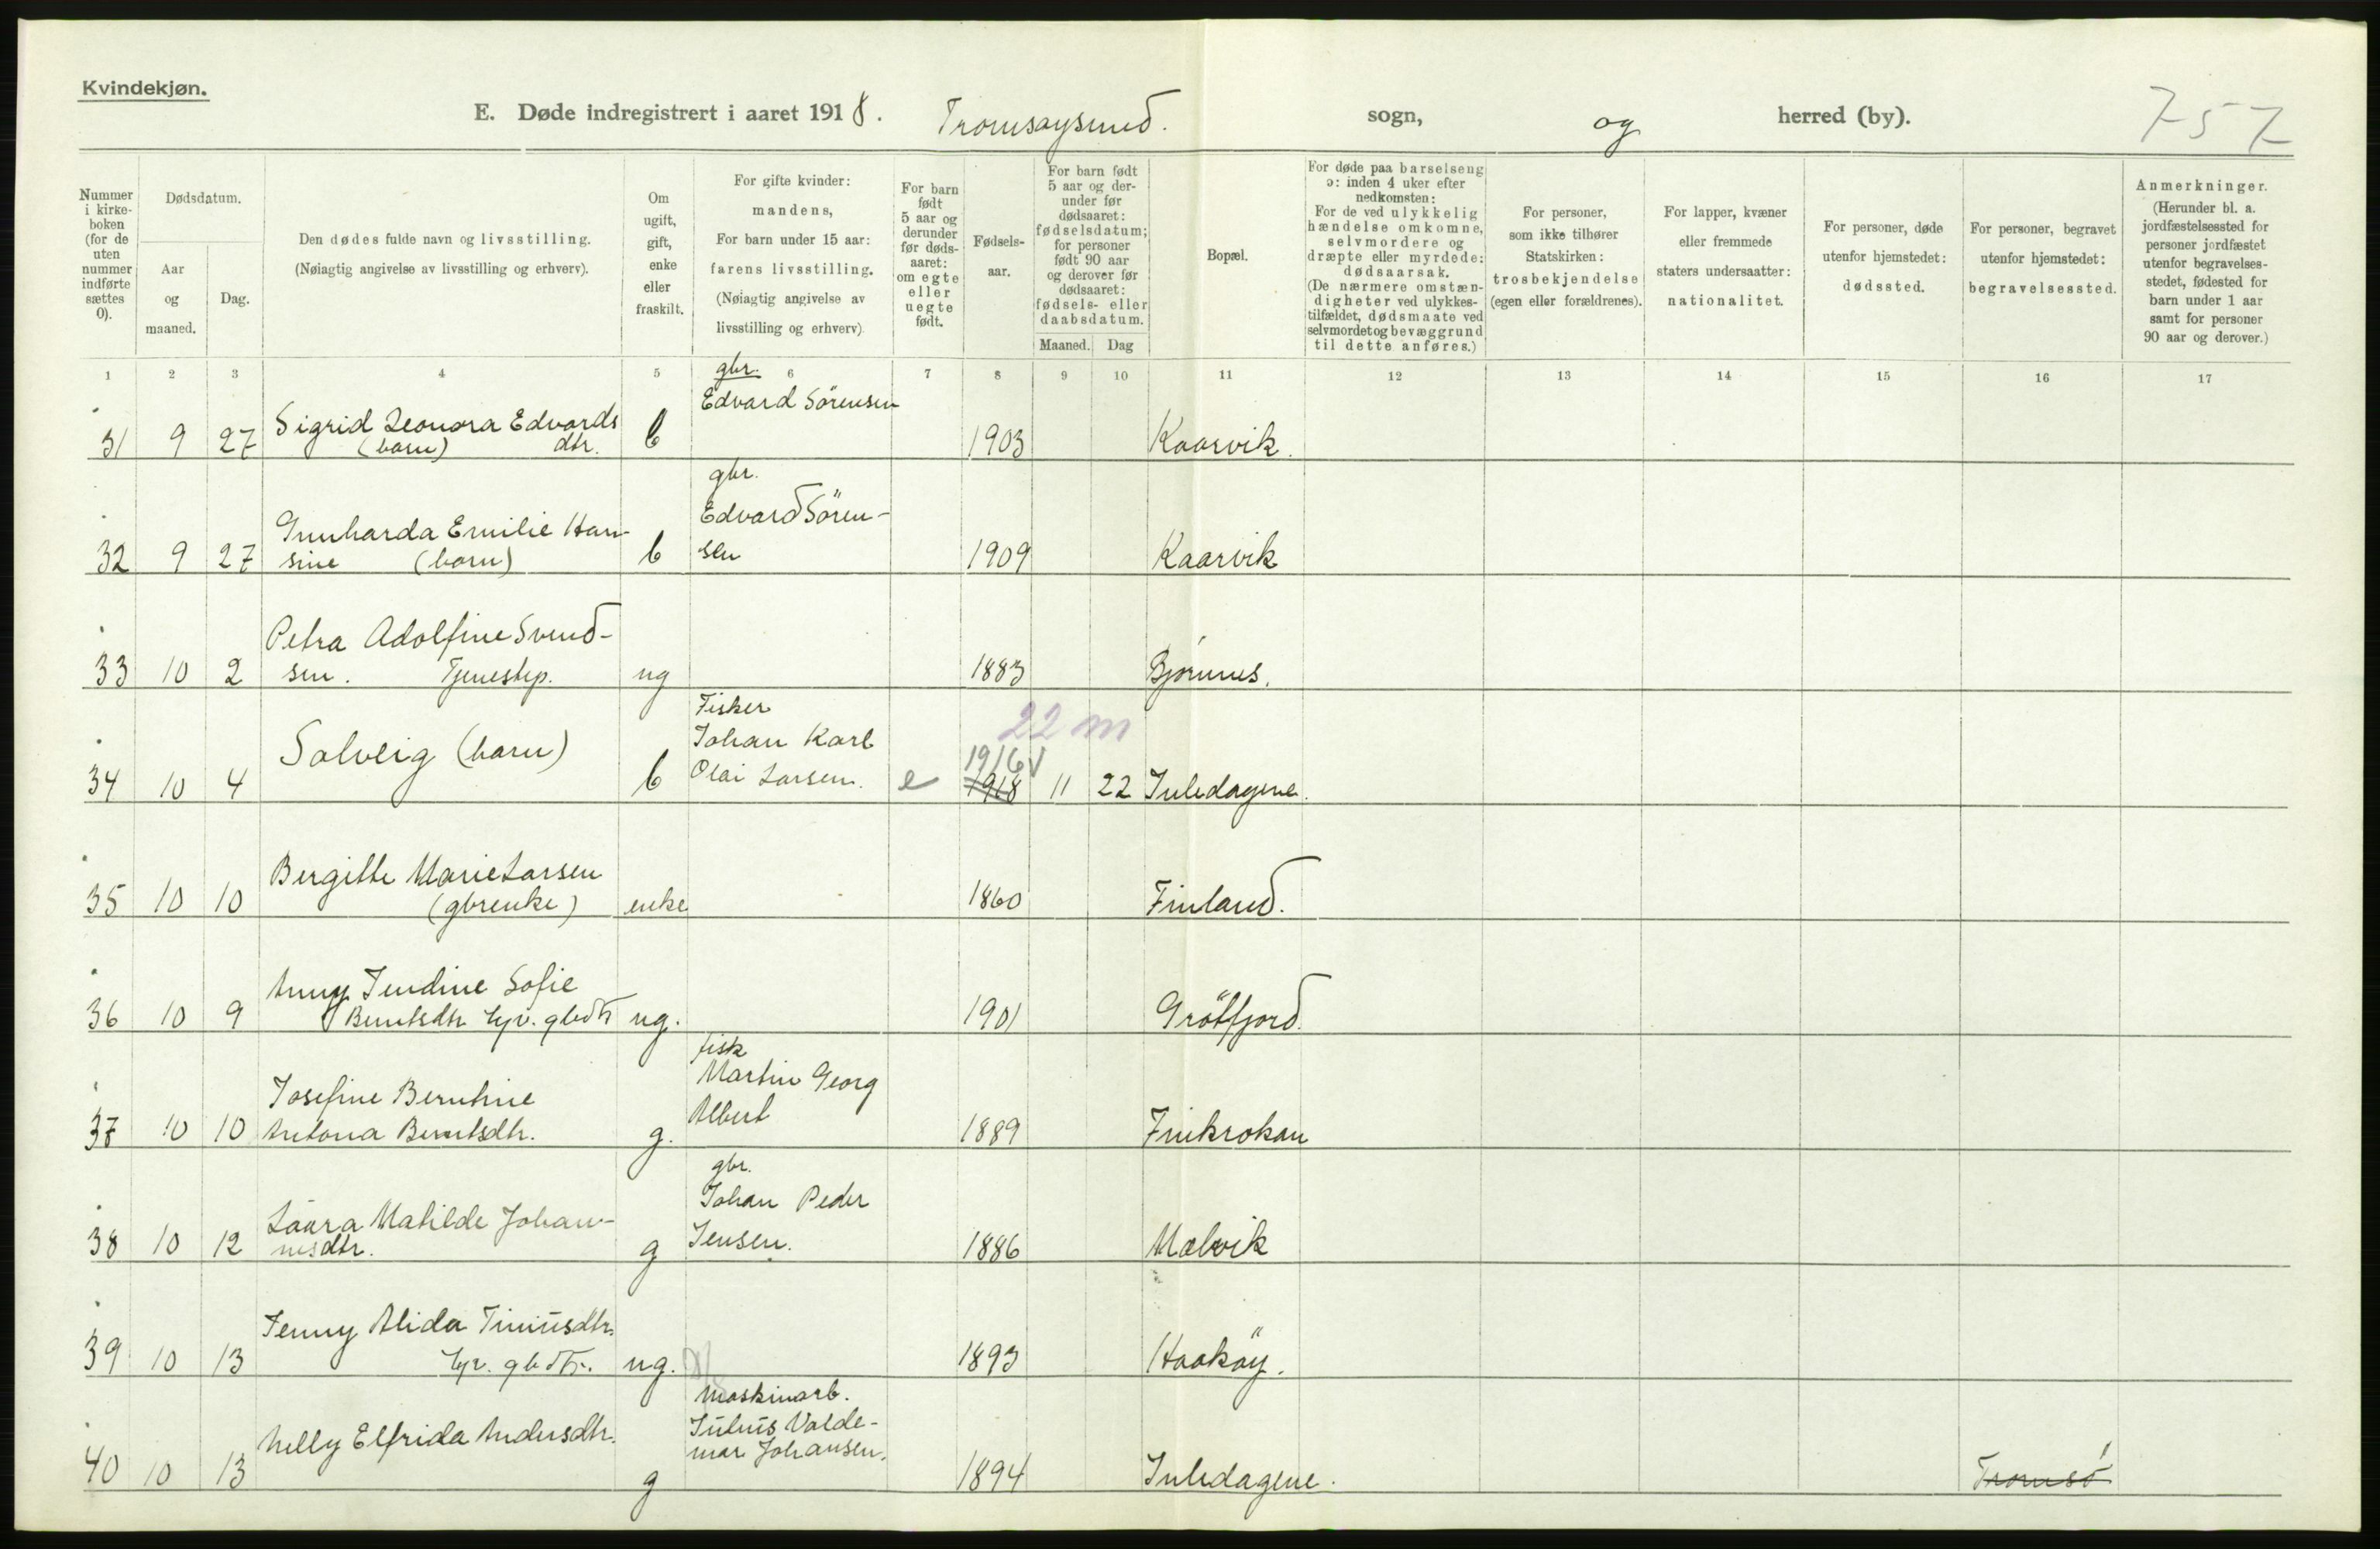 Kvindekjøn.
E. Døde indregistrert i aaret 1918. Tromsøysund. sogn, og herred (by). 757
Nummer i kirke-boken (for de uten nummer indførte sættes 0).
Dødsdatum.
Aar og maaned.
Dag.
Den dødes fulde navn og livsstilling.
(Nøiagtig angivelse av livsstilling og erhverv).
Om ugift, gift, enke eller fraskilt.
For gifte kvinder: mandens,
For barn under 15 aar: farens livsstilling.
(Nøiagtig angivelse av livsstilling og erhverv)
For barn født 5 aar og derunder før døds-aaret: om egte eller uegte født.
Fødsels-aar.
For barn født 5 aar og der-under før dødsaaret: fødselsdatum; for personer født 90 aar og derover før dødsaaret: fødsels- eller daabsdatum.
Maaned. Dag
Bopæl.
For døde paa barselseng ɔ: inden 4 uker efter nedkomsten:
For de ved ulykkelig hændelse omkomne, selvmordere og dræpte eller myrdede: dødsaarsak.
(De nærmere omstæn-digheter ved ulykkes-tilfældet, dødsmaate ved selvmordet og bevæggrund til dette anføres.)
For personer, som ikke tilhører Statskirken: trosbekjendelse (egen eller forældrenes).
For lapper, kvæner eller fremmede staters undersaatter: nationalitet.
For personer, døde utenfor hjemstedet: dødssted.
For personer, begravet utenfor hjemstedet: begravelsessted.
Anmerkninger.
(Herunder bl. a. jordfæstelsessted for personer jordfæstet utenfor begravelses-stedet, fødested for barn under 1 aar samt for personer 90 aar og derover.)
1 2 3 4 5 6 7 8 9 10 11 12 13 14 15 16 17
gbr.
Edvard Sörensen
31 9 27 Sigrid Leonora Edvards
(barn) dtr. b 1903 Kaarvik.
gbr.
Edvard Sören-
32 9 27 Gunharda Emilie Han-
sine (barn) b sen 1909 Kaarvik
Petra Adolfine Svend-
33 10 2 sen. Tjenestep. ug 1883 Bjørnnes.
Fisker
Johan Karl 22 m
Solveig (barn) 1916
34 10 4 b Olai Larsen. e 1918 11 22 Juledagene.
Bergitte Marie Larsen
35 10 10 (gbrenke) enke 1860 Finland.
Anny Jendine Sofie
36 10 9 Berntsdtr hjv. gbdtr ug. 1901 Grötfjord.
fisk
Martin Georg
Josefine Berntine Albert
37 10 10 Antona Berntsdtr. g. 1889 Finkrokan
gbr.
Johan Peder
Laara Matilde Johan-
38 10 12 nesdtr. g Jensen. 1886 Malvik
Jenny Alida Tiniusdtr.
39 10 13 hjv. gbdtr. ug. 1893 Haaköy.
Maskinarb.
Julius Valde-
Nelly Elfrida Andersdtr. mar Johansen.
40 10 13 g 1894 Juledagene. Tromsö